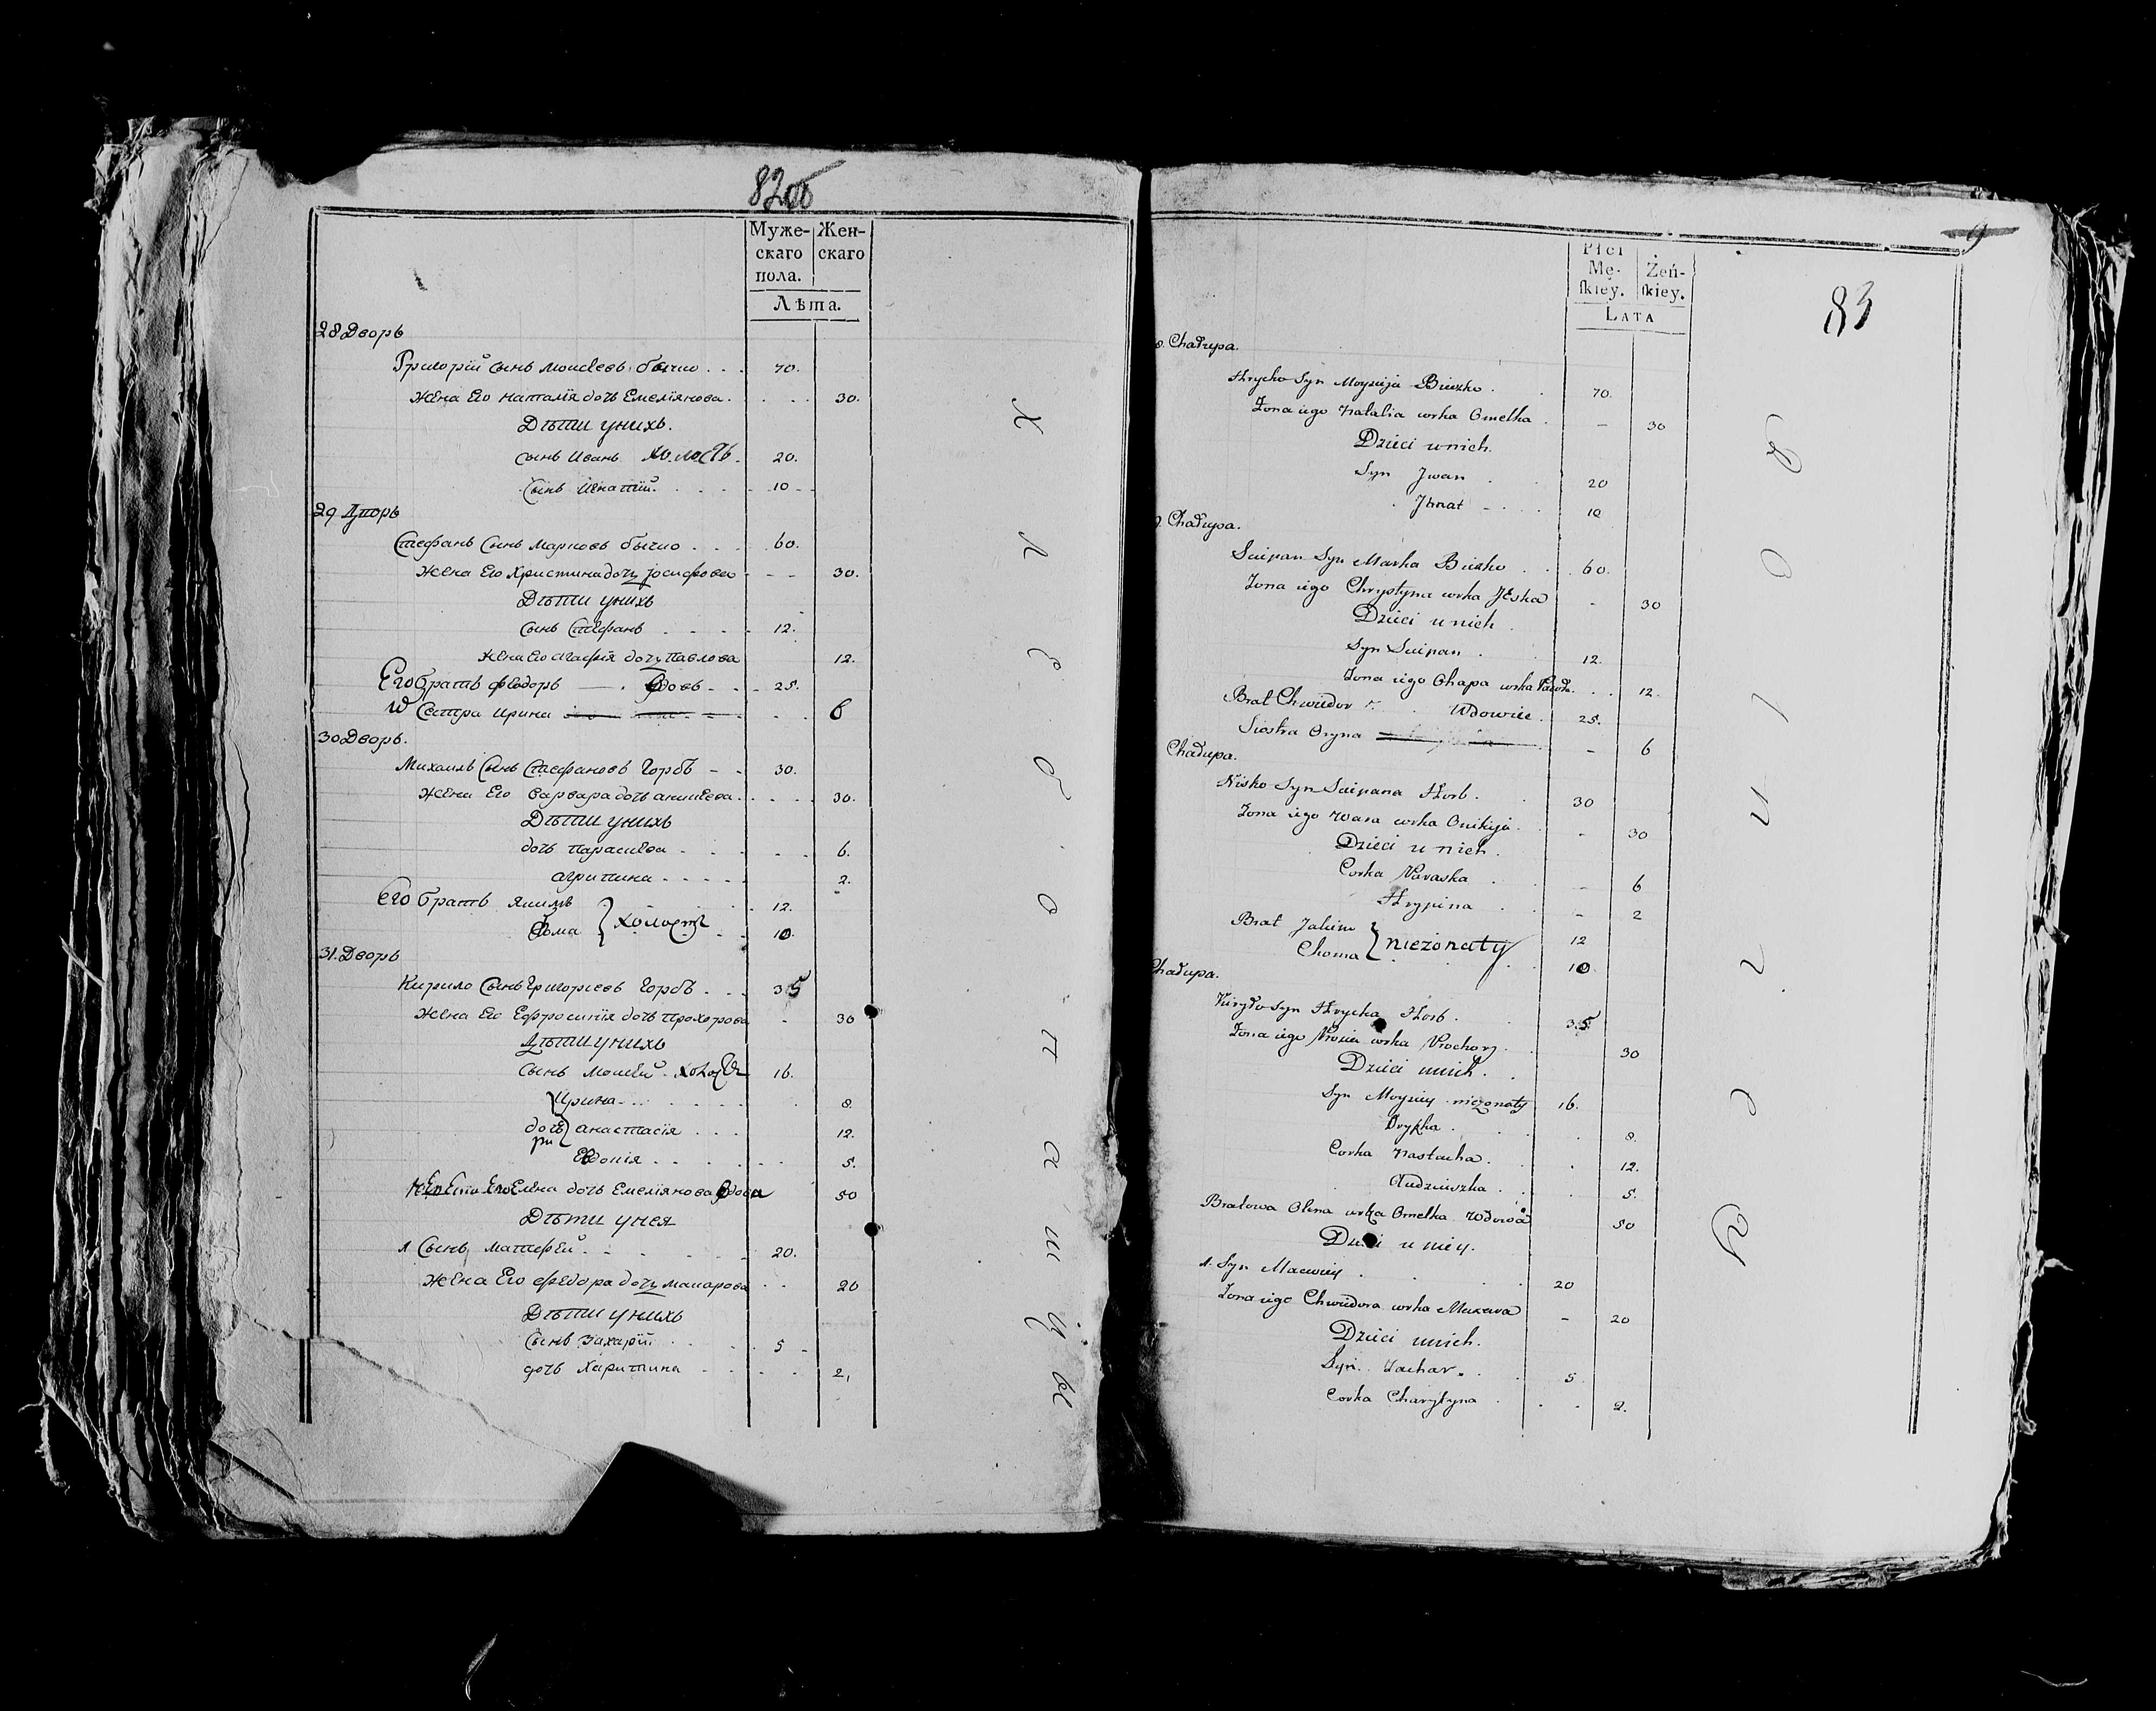 82об
Муже-
скаго
пола.
Жен-
скаго
Лѣта.
28 Дворъ
Григорій сынъ Моисеевъ бычко . . . 70.
Жена Его наталія дочь Емеліянова . . . . 30.
Дѣти унихъ.
сынъ Иванъ холостъ. 20.
Сынъ Игнатій . . . . 10
29 Дворъ
Стефанъ Сынъ Марковъ бычко . . . . 60.
Жена Его Христина дочь Іосифова - - - 30.
Дѣти унихъ
Сынъ Стефанъ . . . . 12.
жена Его агафія дочь Павлова 12.
Его братъ Феодоръ — . вдовъ . . . 25.
Сестра Ирина 6
30 Дворъ.
Михаилъ Сынъ Стефановъ Горбъ - - 30.
Жена Его варвара дочь аникеева . . . . 30.
Дѣти унихъ
дочь параскева . . . . 6.
агрипина . . . . . 2.
его братъ якимъ } холостъ 12.
Фома 10.
31. Дворъ
Кирило Сынъ григориевъ Горбъ . . . 35
Жена Его Ефросинія дочь прохорова - 30
Дѣти унихъ
Сынъ моисей . холостъ 16.
Ирина . . . . . 8.
дочери } анастасія . . . 12.
Евдокія . . . . 5.
Елена дочь Емеліянова вдова 50
Дѣти унея
1 Сынъ матфей . . . . 20.
жена Его феодора дочь макарова . . 20
Дѣти унихъ
Сынъ Захарій . . . 5 -
дочь Харитина . . . . 2,
Х л ѣ б о п а ш ц ы
Płci
Mę-
ſkiey.
Żeń-
ſkiey.
Lata
9
83
Chałupa.
Hrycko Syn Moysieja Biczko . . 70.
Zona iego Natalia corka Omelka . - 30
Dzieci u nich.
Syn Jwan . . 20
Jhnat - . . . 10
Chałupa.
Sciepan Syn Marka Biczko . . 60.
Zona iego Chrystyna corka JEska - 30
Dzieci u nich .
Syn Sciepan . . 12.
Zona iego Ohapa corka Pawła . . . 12.
Brat Chwiedor . . Wdowiec . 25.
Siostra Oryna - 6
Chałupa.
Misko Syn Sciepana Horb . . 30
Zona iego Wara corka Onikija . - 30
Dzieci u nich .
Corka Paraska . - 6
Hrypina . - 2
Brat Jakim } nieżonaty 12
Choma 10.
Chałupa.
Kiryło Syn Hrycka Horb . . 35
Zona iego Prosia corka Prochory . 30
Dzieci unich . .
Syn Moysiey . niezonaty 16.
Orypka . . . . 8.
Corka Nastacha . . 12.
Audzieszka . . . 5.
Bratowa Olena corka Omelka Wdowa 50
Dzieci u niey.
1. Syn Maciwiey . . . . 20
Zona iego Chwiedora corka Makara - 20
Dzieci unich.
Syn . Zachar . . . 5
Corka Charytyna . . . 2.